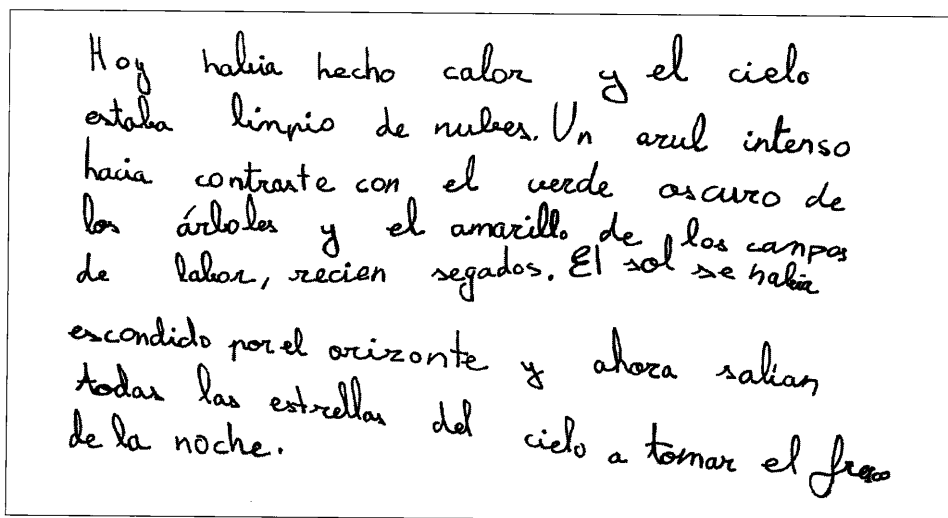 Hoy habia hecho calor y el cielo
estaba linpio de nubes. Un azul intenso
hacia contraste con el verde oscuro de
los árboles y el amarillo de los canpos
de labor, recien segados. El sol se habia
escondido por el orizonte y ahora salian
todas las estrellas del cielo a tomar el fresco
de la noche.